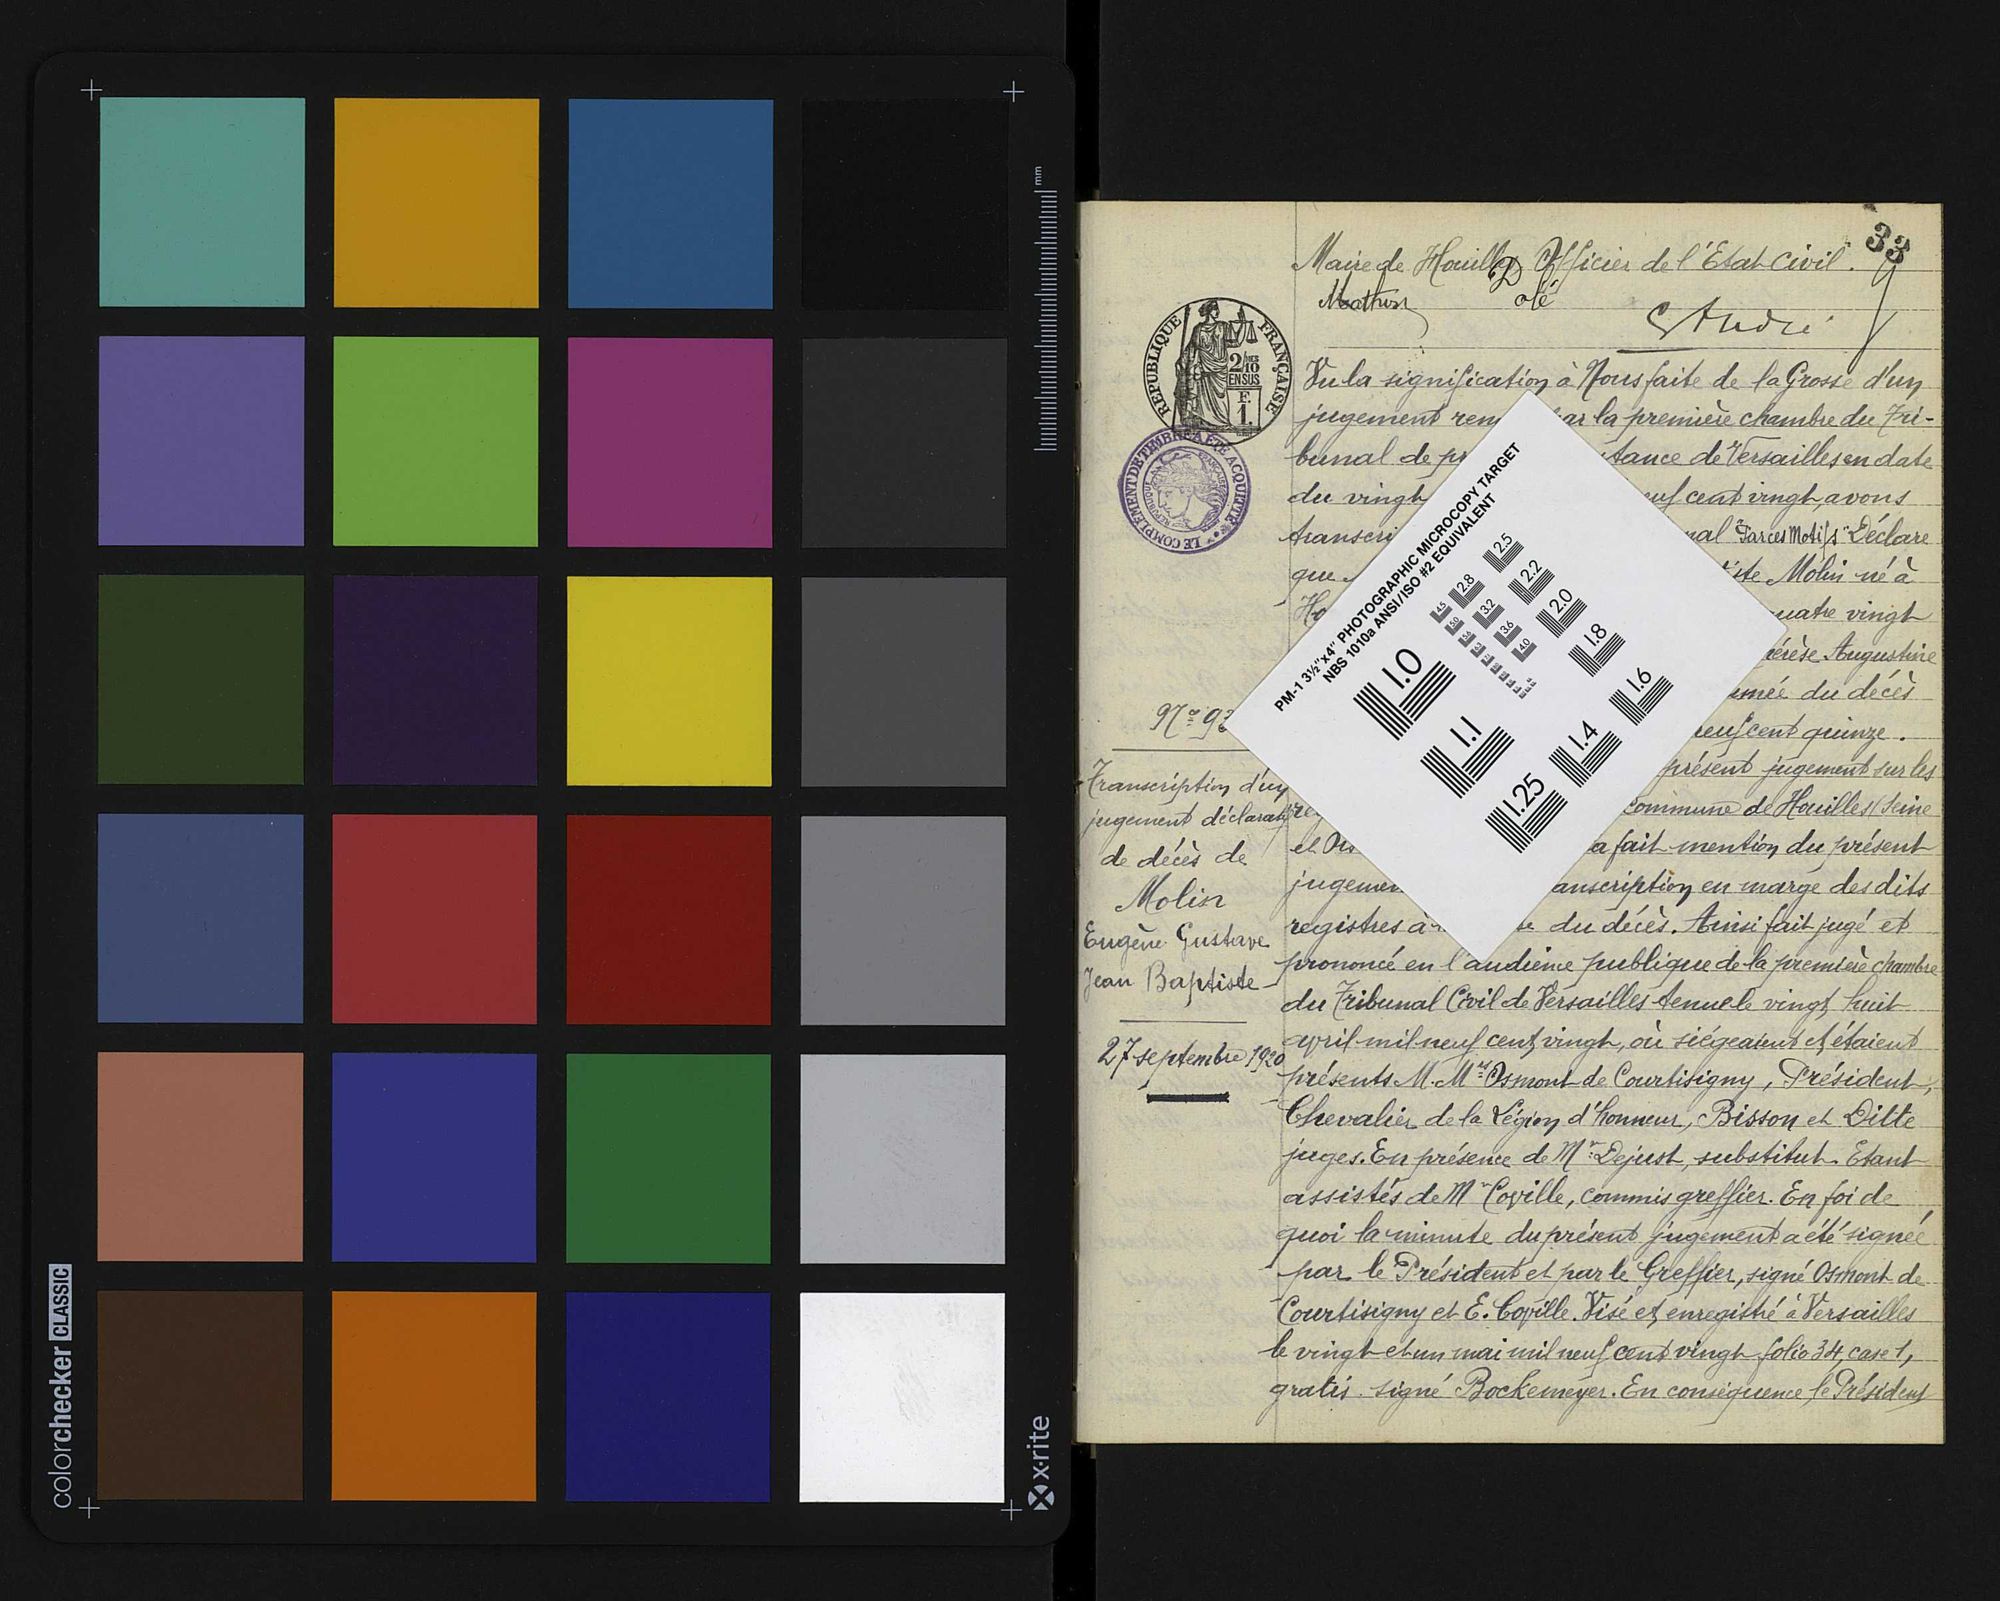 colorchecker CLASSIC
x-rite
mm
33
Maire de Houilles Officier de l'Etat Civil.
André
RÉPUBLIQUE FRANÇAISE
2/10 EN SUS
F.
1.
LE COMPLÉMENT DE TIMBRE A ÉTÉ ACQUITTÉ
Vu la signification à Nous faite de la Grosse d'un
jugement ren ar la première chambre du Tri-
bunal de pr tance de Versailles en date
du vingt euf cent vingt, avons
transcri nal "Par ces Motifs" Déclare
que iste Molin né à
Ho uatre vingt
érèse Augustine
umée du décès
neuf cent quinze.
présent jugement sur les
commune de Houilles (Seine
et Ois a fait mention du présent
jugemen anscription en marge des dits
registres à du décès. Ainsi fait jugé et
prononcé en l'audience publique de la première chambre
du Tribunal Civil de Versailles tenue le vingt huit
avril mil neuf cent vingt, où siégeaient et étaient
présents M.Mrs Osmont de Courtisigny, Président,
Chevalier de la Légion d'honneur, Bisson et Ditte
juges. En présence de Mr Dejust, substitut. Etant
assistés de Mr Coville, commis greffier. En foi de
quoi la minute du présent jugement a été signée
par le Président et par le Greffier, signé Osmont de
Courtisigny et E. Coville. Visé et enregistré à Versailles
le vingt et un mai mil neuf cent vingt folio 34, case 1,
gratis. signé Bockemeyer. En conséquence le Président
No 93
Transcription d'un
jugement déclaratif
de décès de
Molin
Eugène Gustave
Jean Baptiste
27 septembre 1920
PM-1 3½"x4" PHOTOGRAPHIC MICROCOPY TARGET
NBS 1010a ANSI/ISO #2 EQUIVALENT
1.0
1.1
1.25
1.4
1.6
1.8
2.0
2.2
2.5
2.8
3.2
3.6
4.0
4.5
5.0
5.6